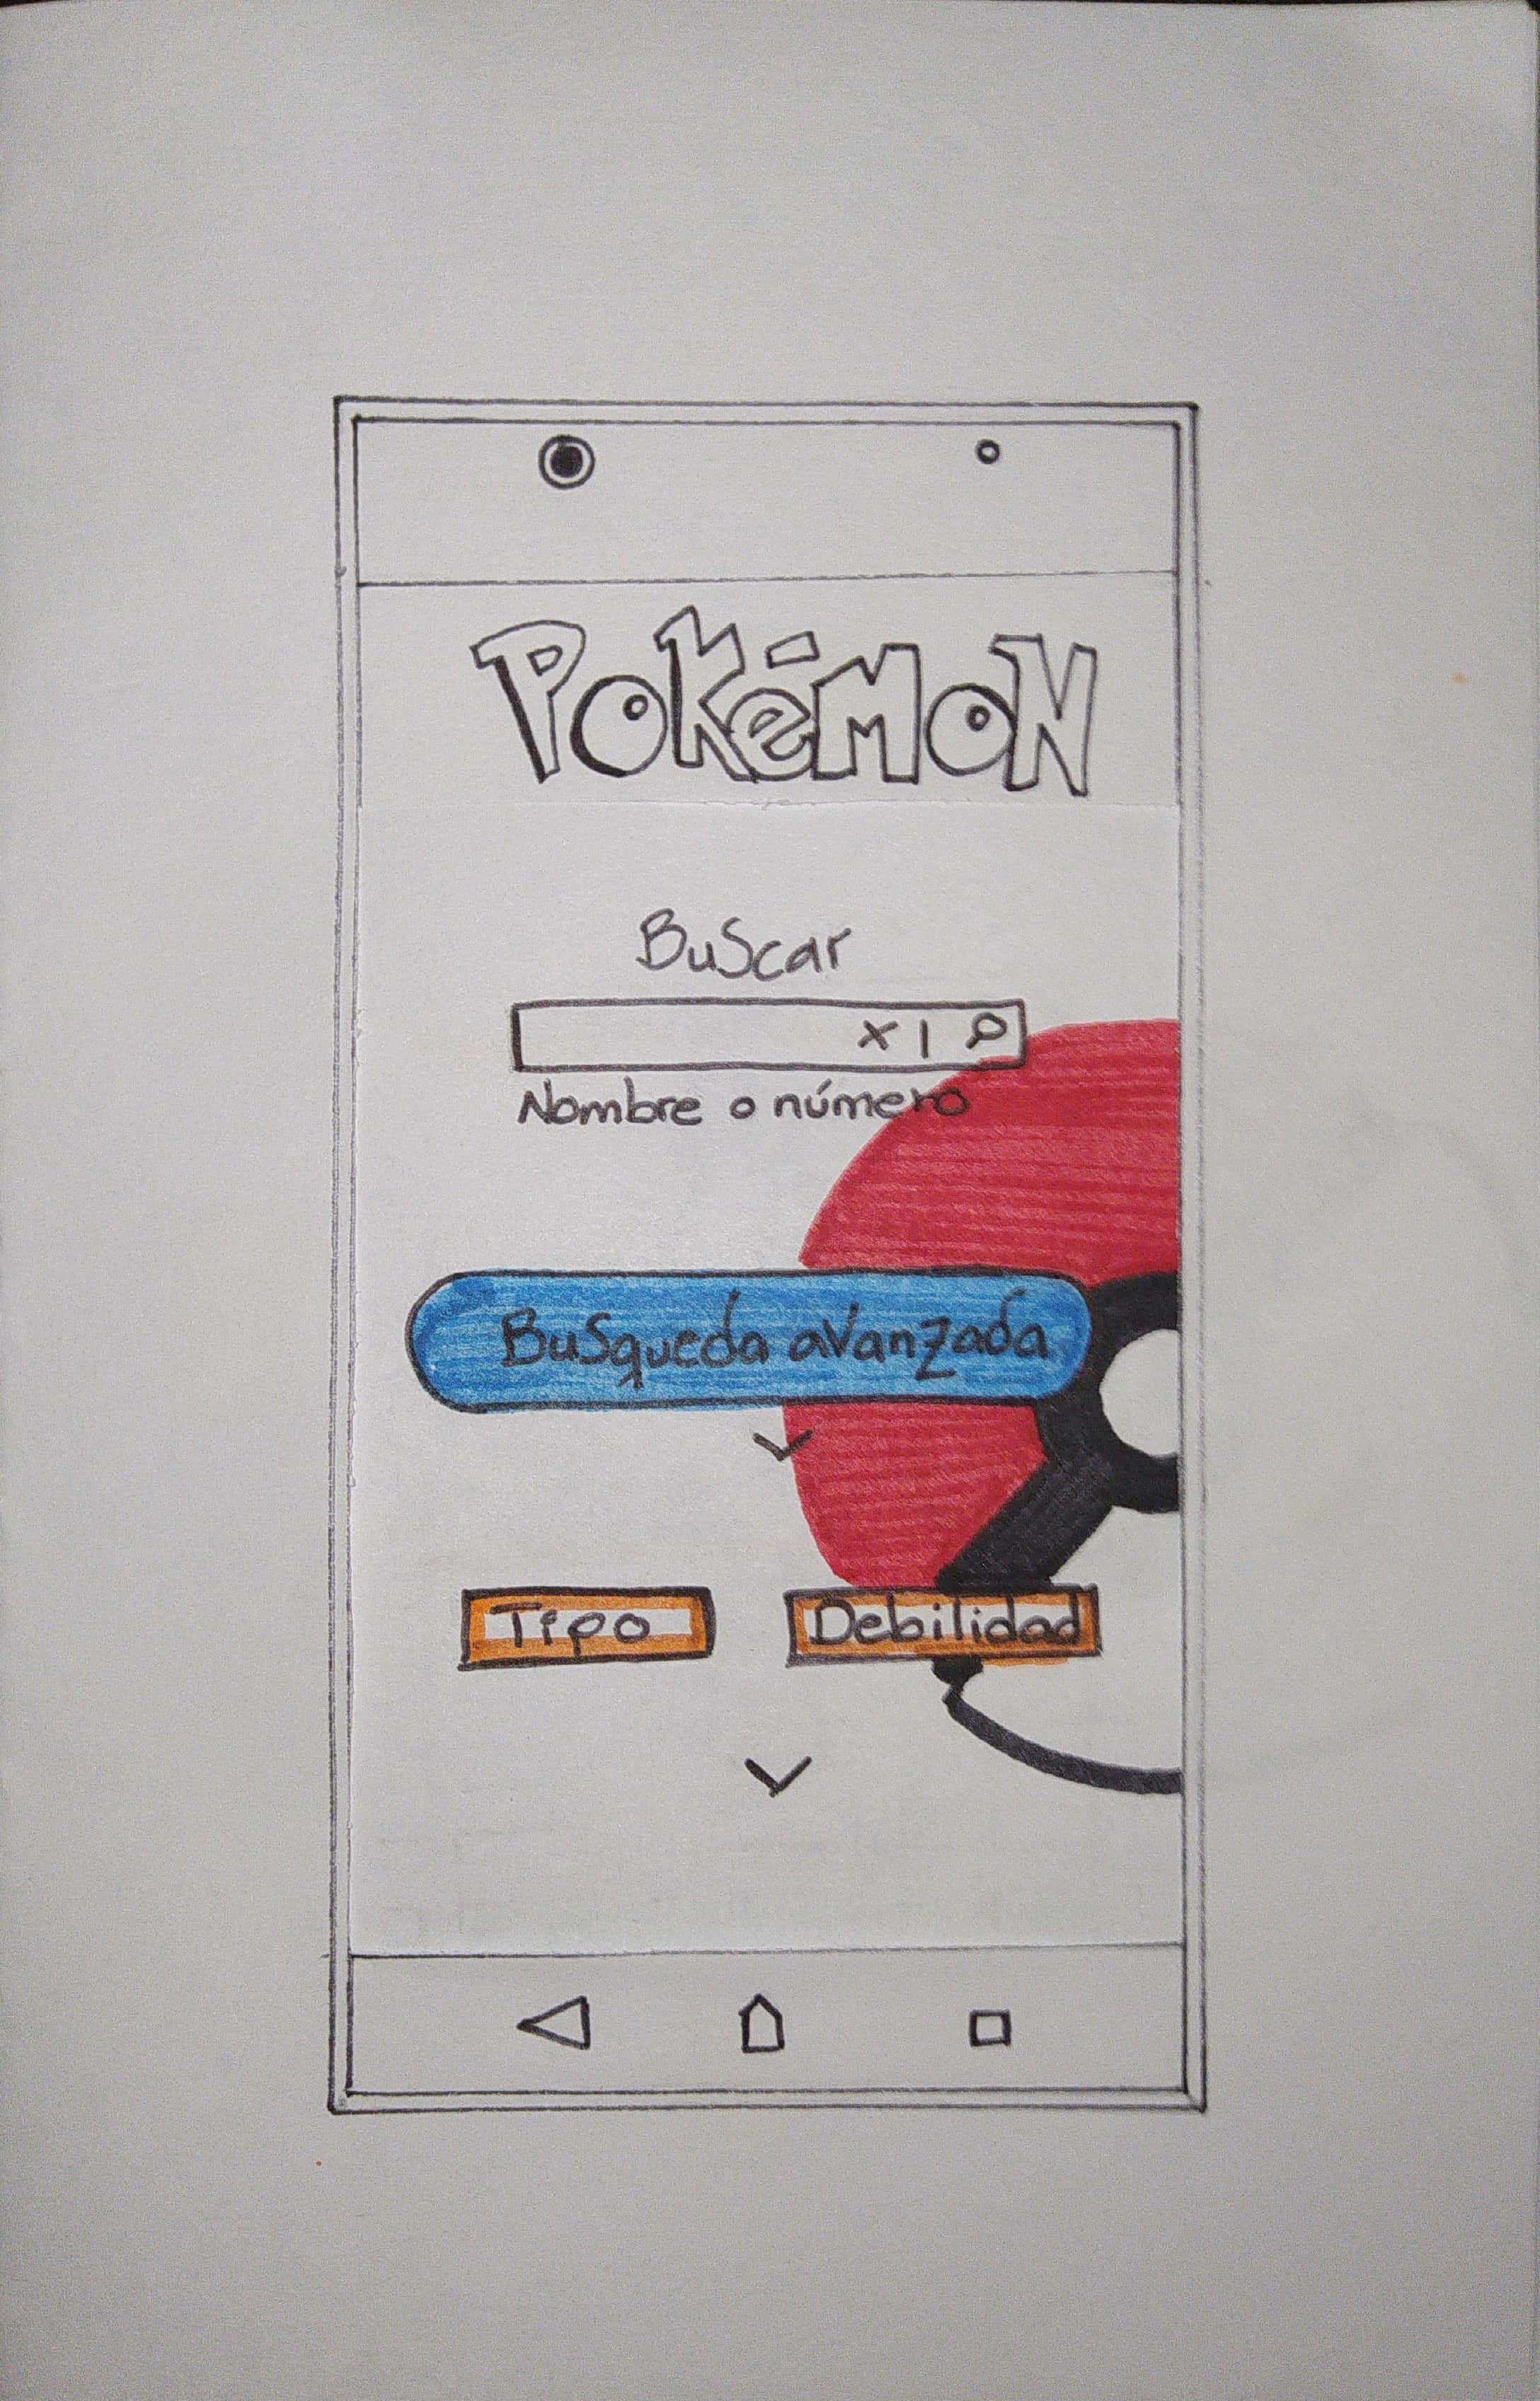 Pokémon
Buscar
X | 
Nombre o número
Busqueda avanzada
Tipo
Debilidad